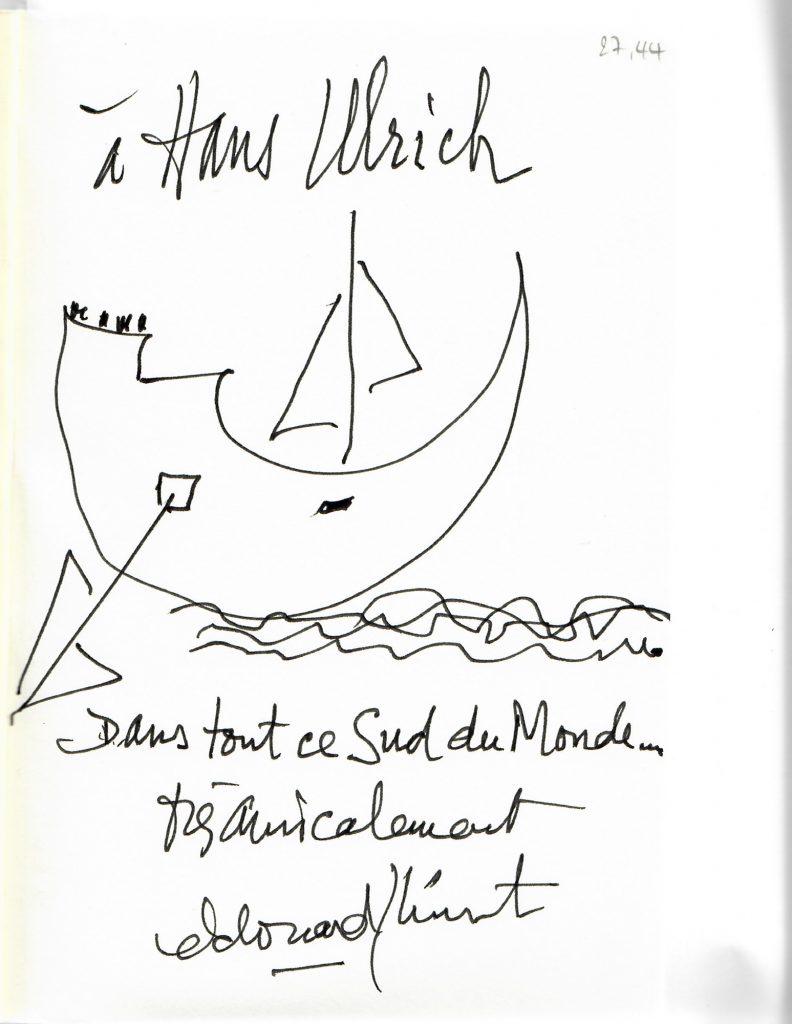 27,44
à Hans Ulrich
Dans tout ce Sud du Monde...
très amicalement
edouard glissant